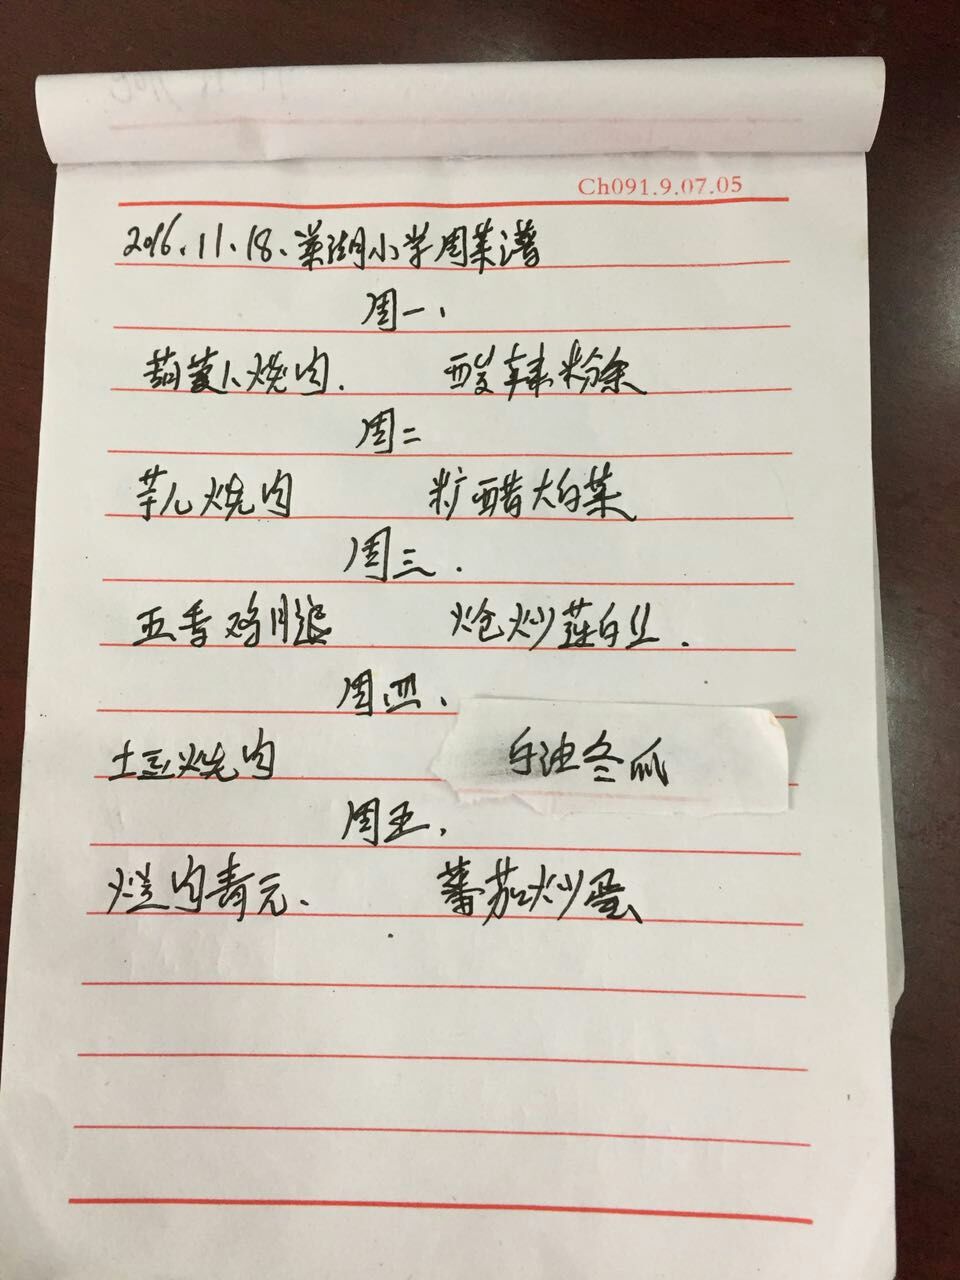 Ch091.9.07.05
2016.11.18.莱湖小学周菜谱
周一.
葫萝卜烧肉. 酸辣粉条
周二
芋儿烧肉 糖醋大白菜
周三.
五香鸡腿 炝炒莲白.
周四.
土豆烧肉 白油冬瓜
周五.
烂肉青元. 蕃茄炒蛋